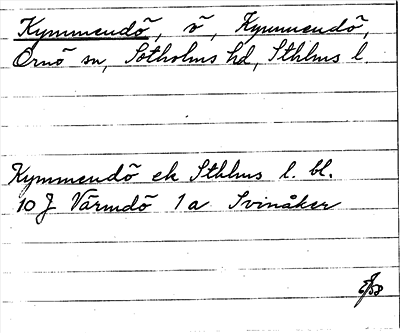 Kymmendö, ö, Kymmendö,
Ornö sn, Sotholms hd, Sthlms l.
Kymmendö ek Sthlms l. bl.
10 J Värmdö 1 a Svinåker